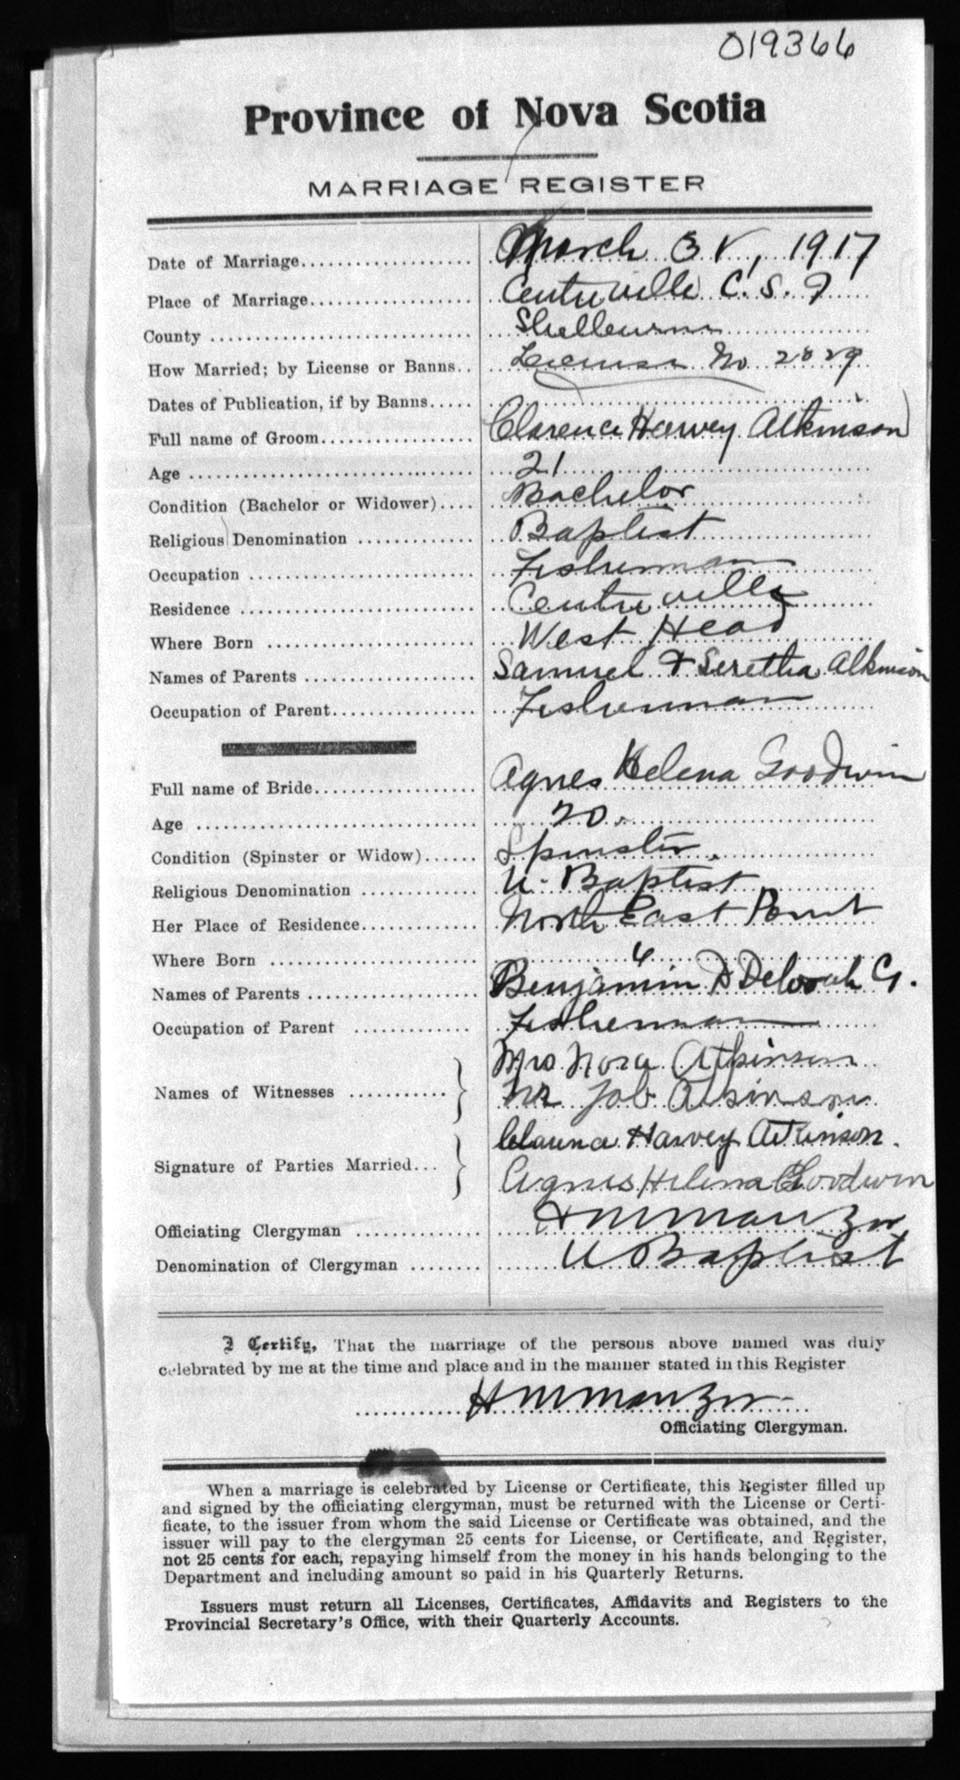 019366
Province of Nova Scotia
MARRIAGE REGISTER
Date of Marriage.................... March 31, 1917
Place of Marriage.................. Centreville C. S. I
County .......................... Shelburne
How Married; by License or Banns.. License No. 2029
Dates of Publication, if by Banns.....
Full name of Groom................ Clarence Harvey Atkinson
Age ............................ 21
Condition (Bachelor or Widower).... Bachelor
Religious Denomination ............ Baptist
Occupation ....................... Fisherman
Residence ........................ Centreville
Where Born ..................... West Head
Names of Parents .................. Samuel & Seretha Atkinson
Occupation of Parent............... Fisherman
Full name of Bride................. Agnes Helena Goodwin
Age ............................. 20.
Condition (Spinster or Widow)...... Spinster.
Religious Denomination ............ U. Baptist
Her Place of Residence............. North East Point
Where Born .....................
Names of Parents ................. Benjamin & Deborah G.
Occupation of Parent ............. Fisherman
Mrs Nora Atkinson
Names of Witnesses ........... Mr Job Atkinson
Harvey Atkinson.
Signature of Parties Married... Agnes Helena Goodwin
Officiating Clergyman ............. H M Manzer
Denomination of Clergyman ........ U Baptist
I Certify, That the marriage of the persons above named was duly
celebrated by me at the time and place and in the manner stated in this Register
H M Manzer
Officiating Clergyman.
When a marriage is celebrated by License or Certificate, this Register filled up
and signed by the officiating clergyman, must be returned with the License or Certi-
ficate, to the issuer from whom the said License or Certificate was obtained, and the
issuer will pay to the clergyman 25 cents for License, or Certificate, and Register,
not 25 cents for each, repaying himself from the money in his hands belonging to the
Department and including amount so paid in his Quarterly Returns.
Issuers must return all Licenses, Certificates, Affidavits and Registers to the
Provincial Secretary's Office, with their Quarterly Accounts.